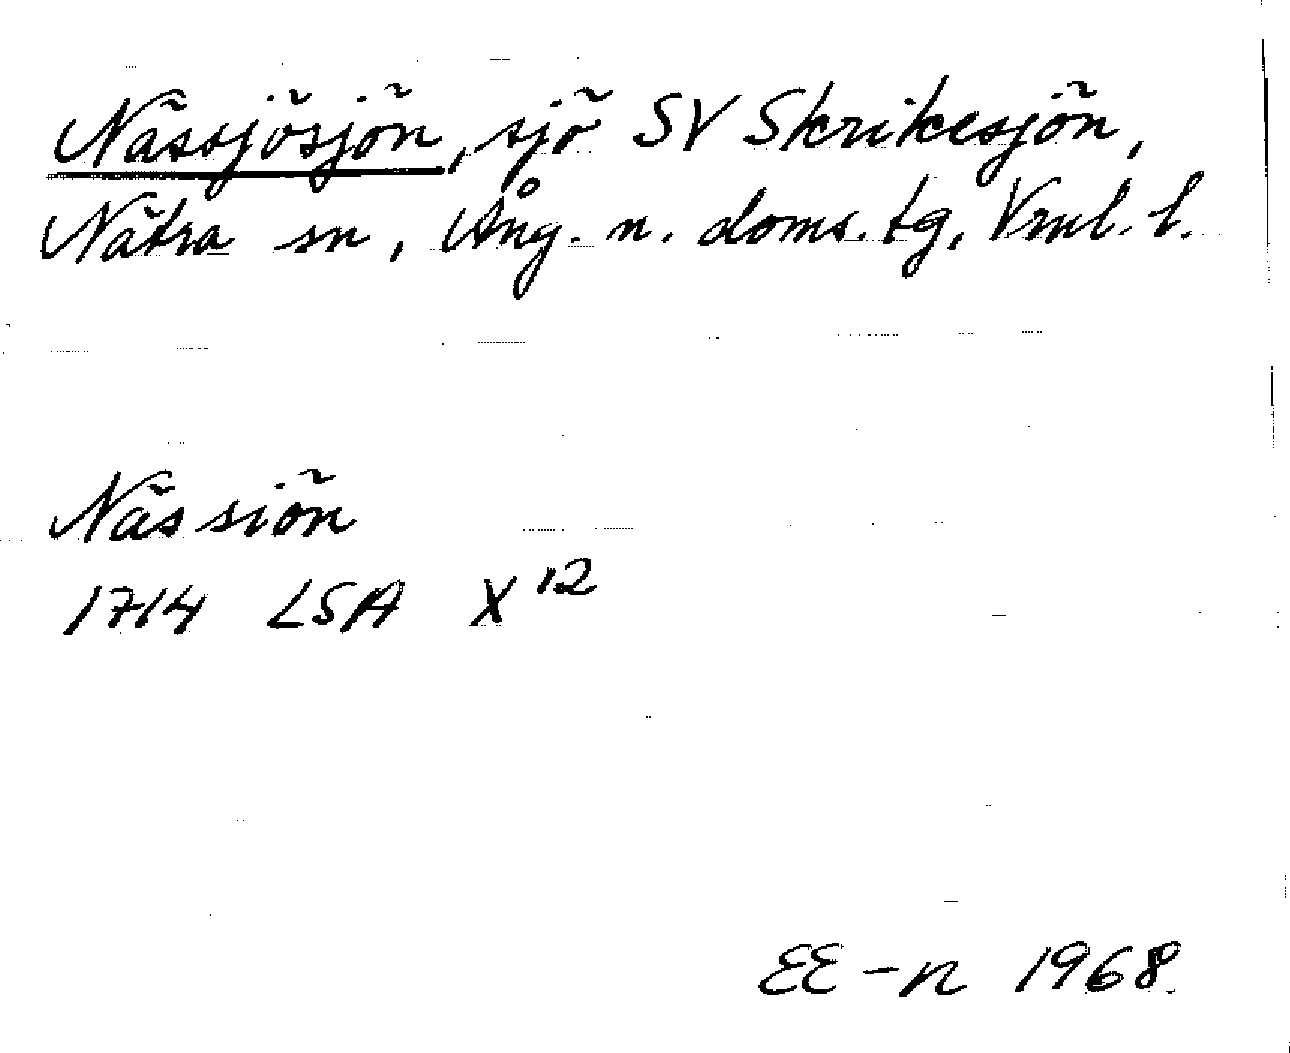 Nässjösjön, sjö SV Skrikesjön,
Nätra sn, Ång. n. doms. tg, Vrnl. l.
Nässiön
1714 LSA X¹²
EE-n 1968